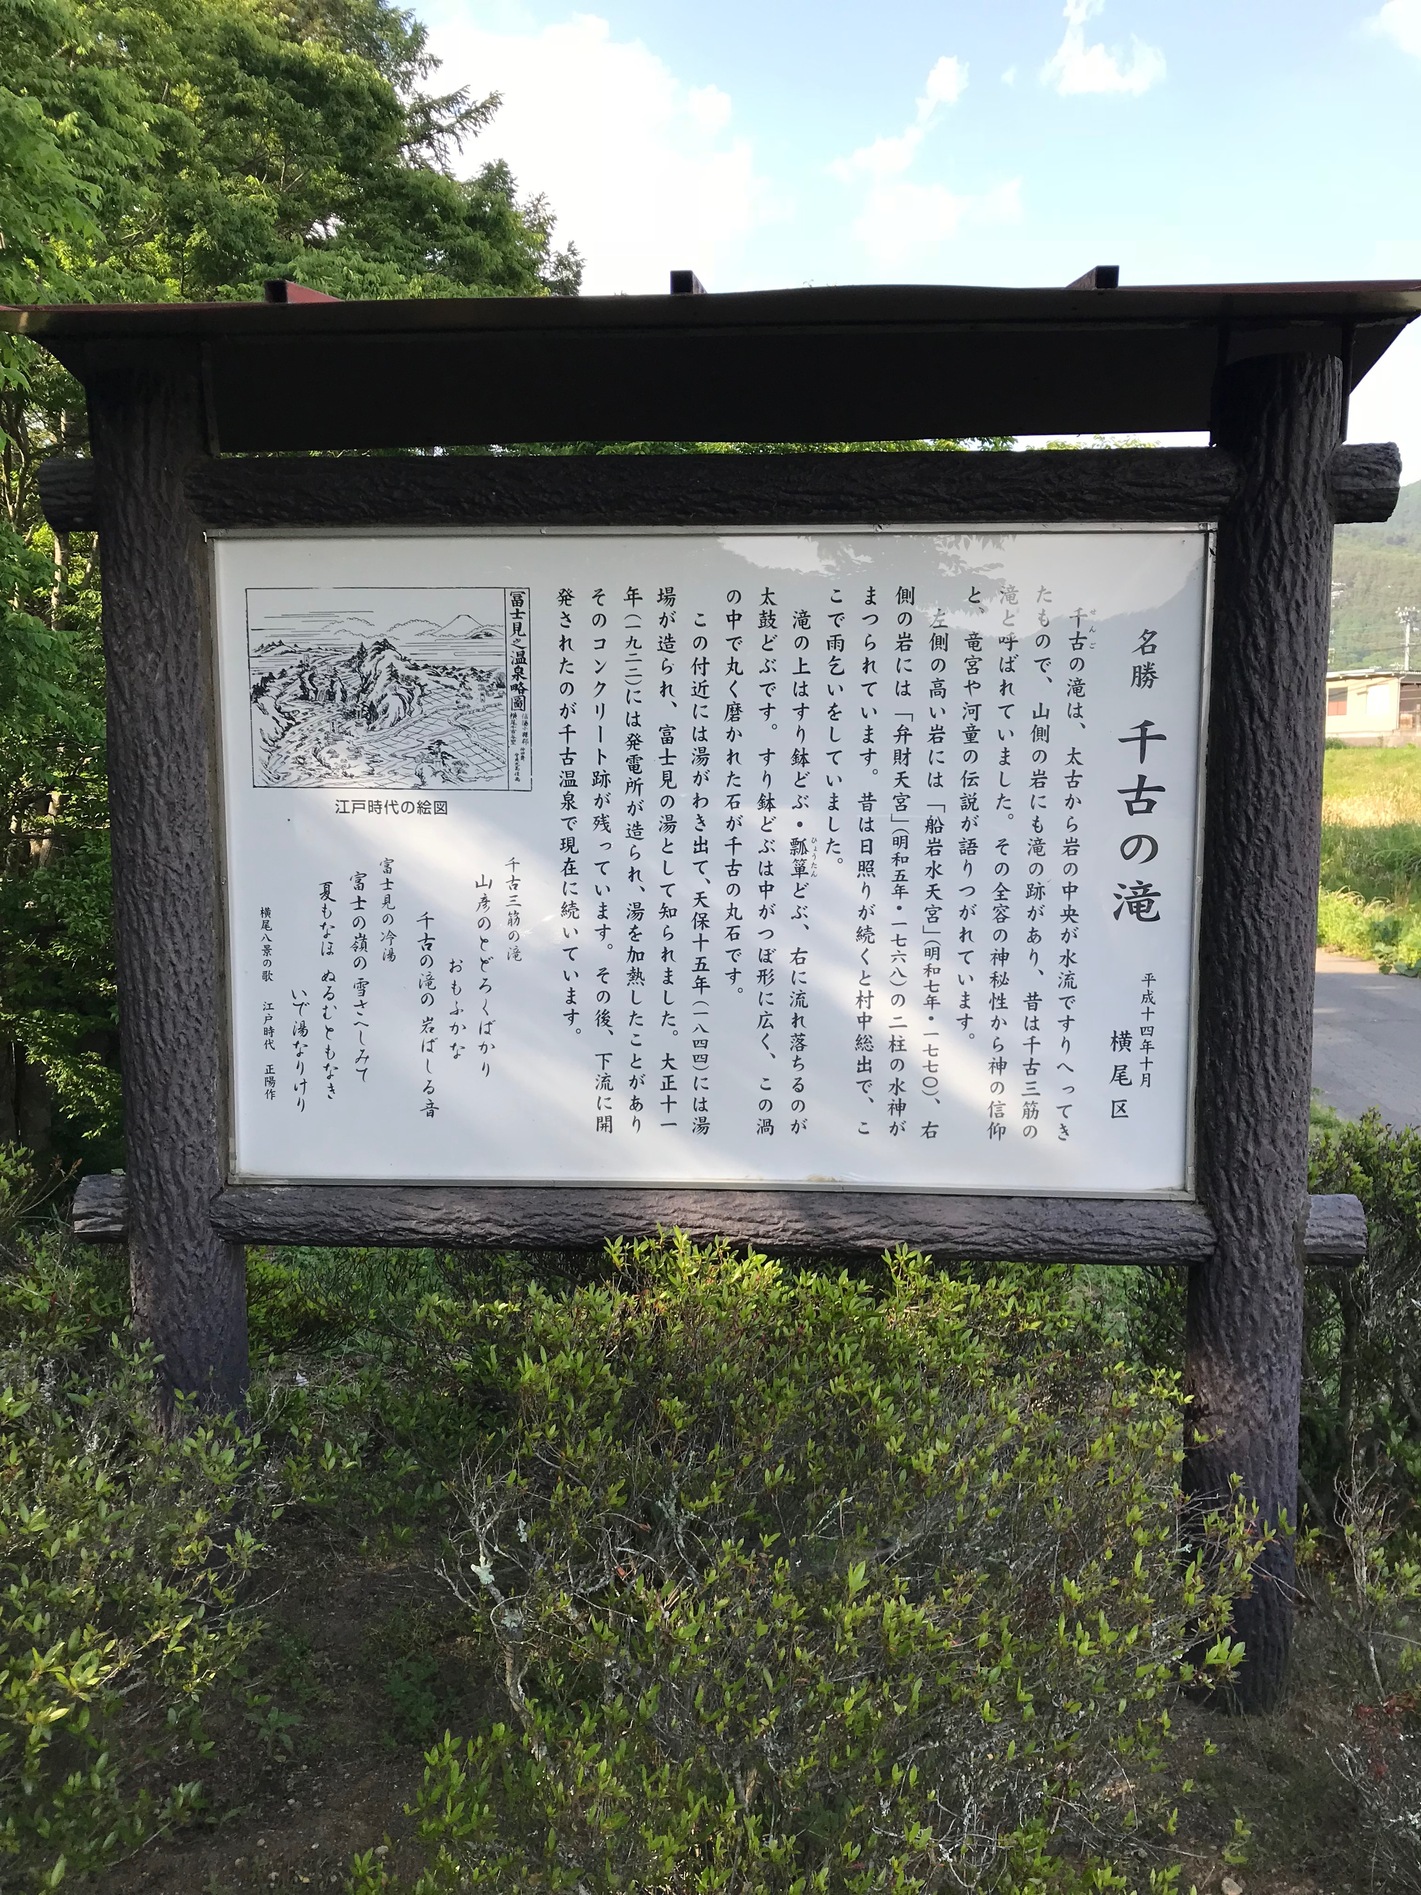 名勝 千古の滝
平成十四年十月
横尾区
千古の滝は、太古から岩の中央が水流ですりへってき
せんご
たもので、山側の岩にも滝の跡があり、昔は千古三筋の
滝と呼ばれていました。その全容の神秘性から神の信仰
と、竜宮や河童の伝説が語りつがれています。
左側の高い岩には「船岩水天宮」(明和七年・一七七〇)、右
側の岩には「弁財天宮」(明和五年・一七六八)の二柱の水神が
まつられています。昔は日照りが続くと村中総出で、こ
こで雨乞いをしていました。
滝の上はすり鉢どぶ・瓢箪どぶ、右に流れ落ちるのが
ひょうたん
太鼓どぶです。すり鉢どぶは中がつぼ形に広く、この渦
の中で丸く磨かれた石が千古の丸石です。
この付近には湯がわき出て、天保十五年(一八四四)には湯
場が造られ、富士見の湯として知られました。大正十一
年(一九二二)には発電所が造られ、湯を加熱したことがあり
そのコンクリート跡が残っています。その後、下流に開
発されたのが千古温泉で現在に続いています。
冨士見之温泉略圖
江戸時代の絵図
千古三筋の滝
山彦のとどろくばかり
おもふかな
千古の滝の岩ばしる音
富士見の冷湯
富士の嶺の雪さへしみて
夏もなほ ぬるむともなき
いで湯なりけり
横尾八景の歌 江戸時代 正陽作